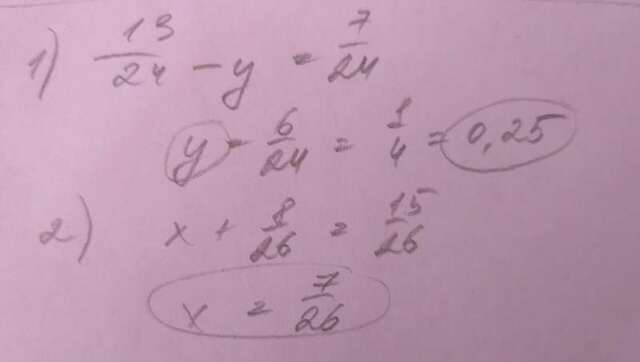 1) 13/24 - y = 7/24
y = 6/24 = 1/4 = 0,25
2) x + 8/26 = 15/26
x = 7/26